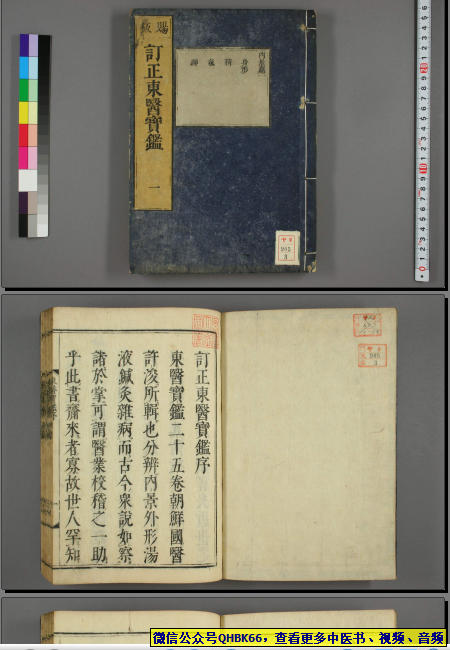 官板
訂正東醫寶鑑 一
内景篇
身形
精
氣
神
985
3
訂正東醫寶鑑序
東醫寶鑑二十五卷朝鮮國醫
許浚所輯也分辨内景外形湯
液鍼灸雜病而古今衆說如察
諸於掌可謂醫業校稽之一助
乎此書齎來者寡故世人罕知
985
3
微信公众号QHBK66，查看更多中医书、视频、音频